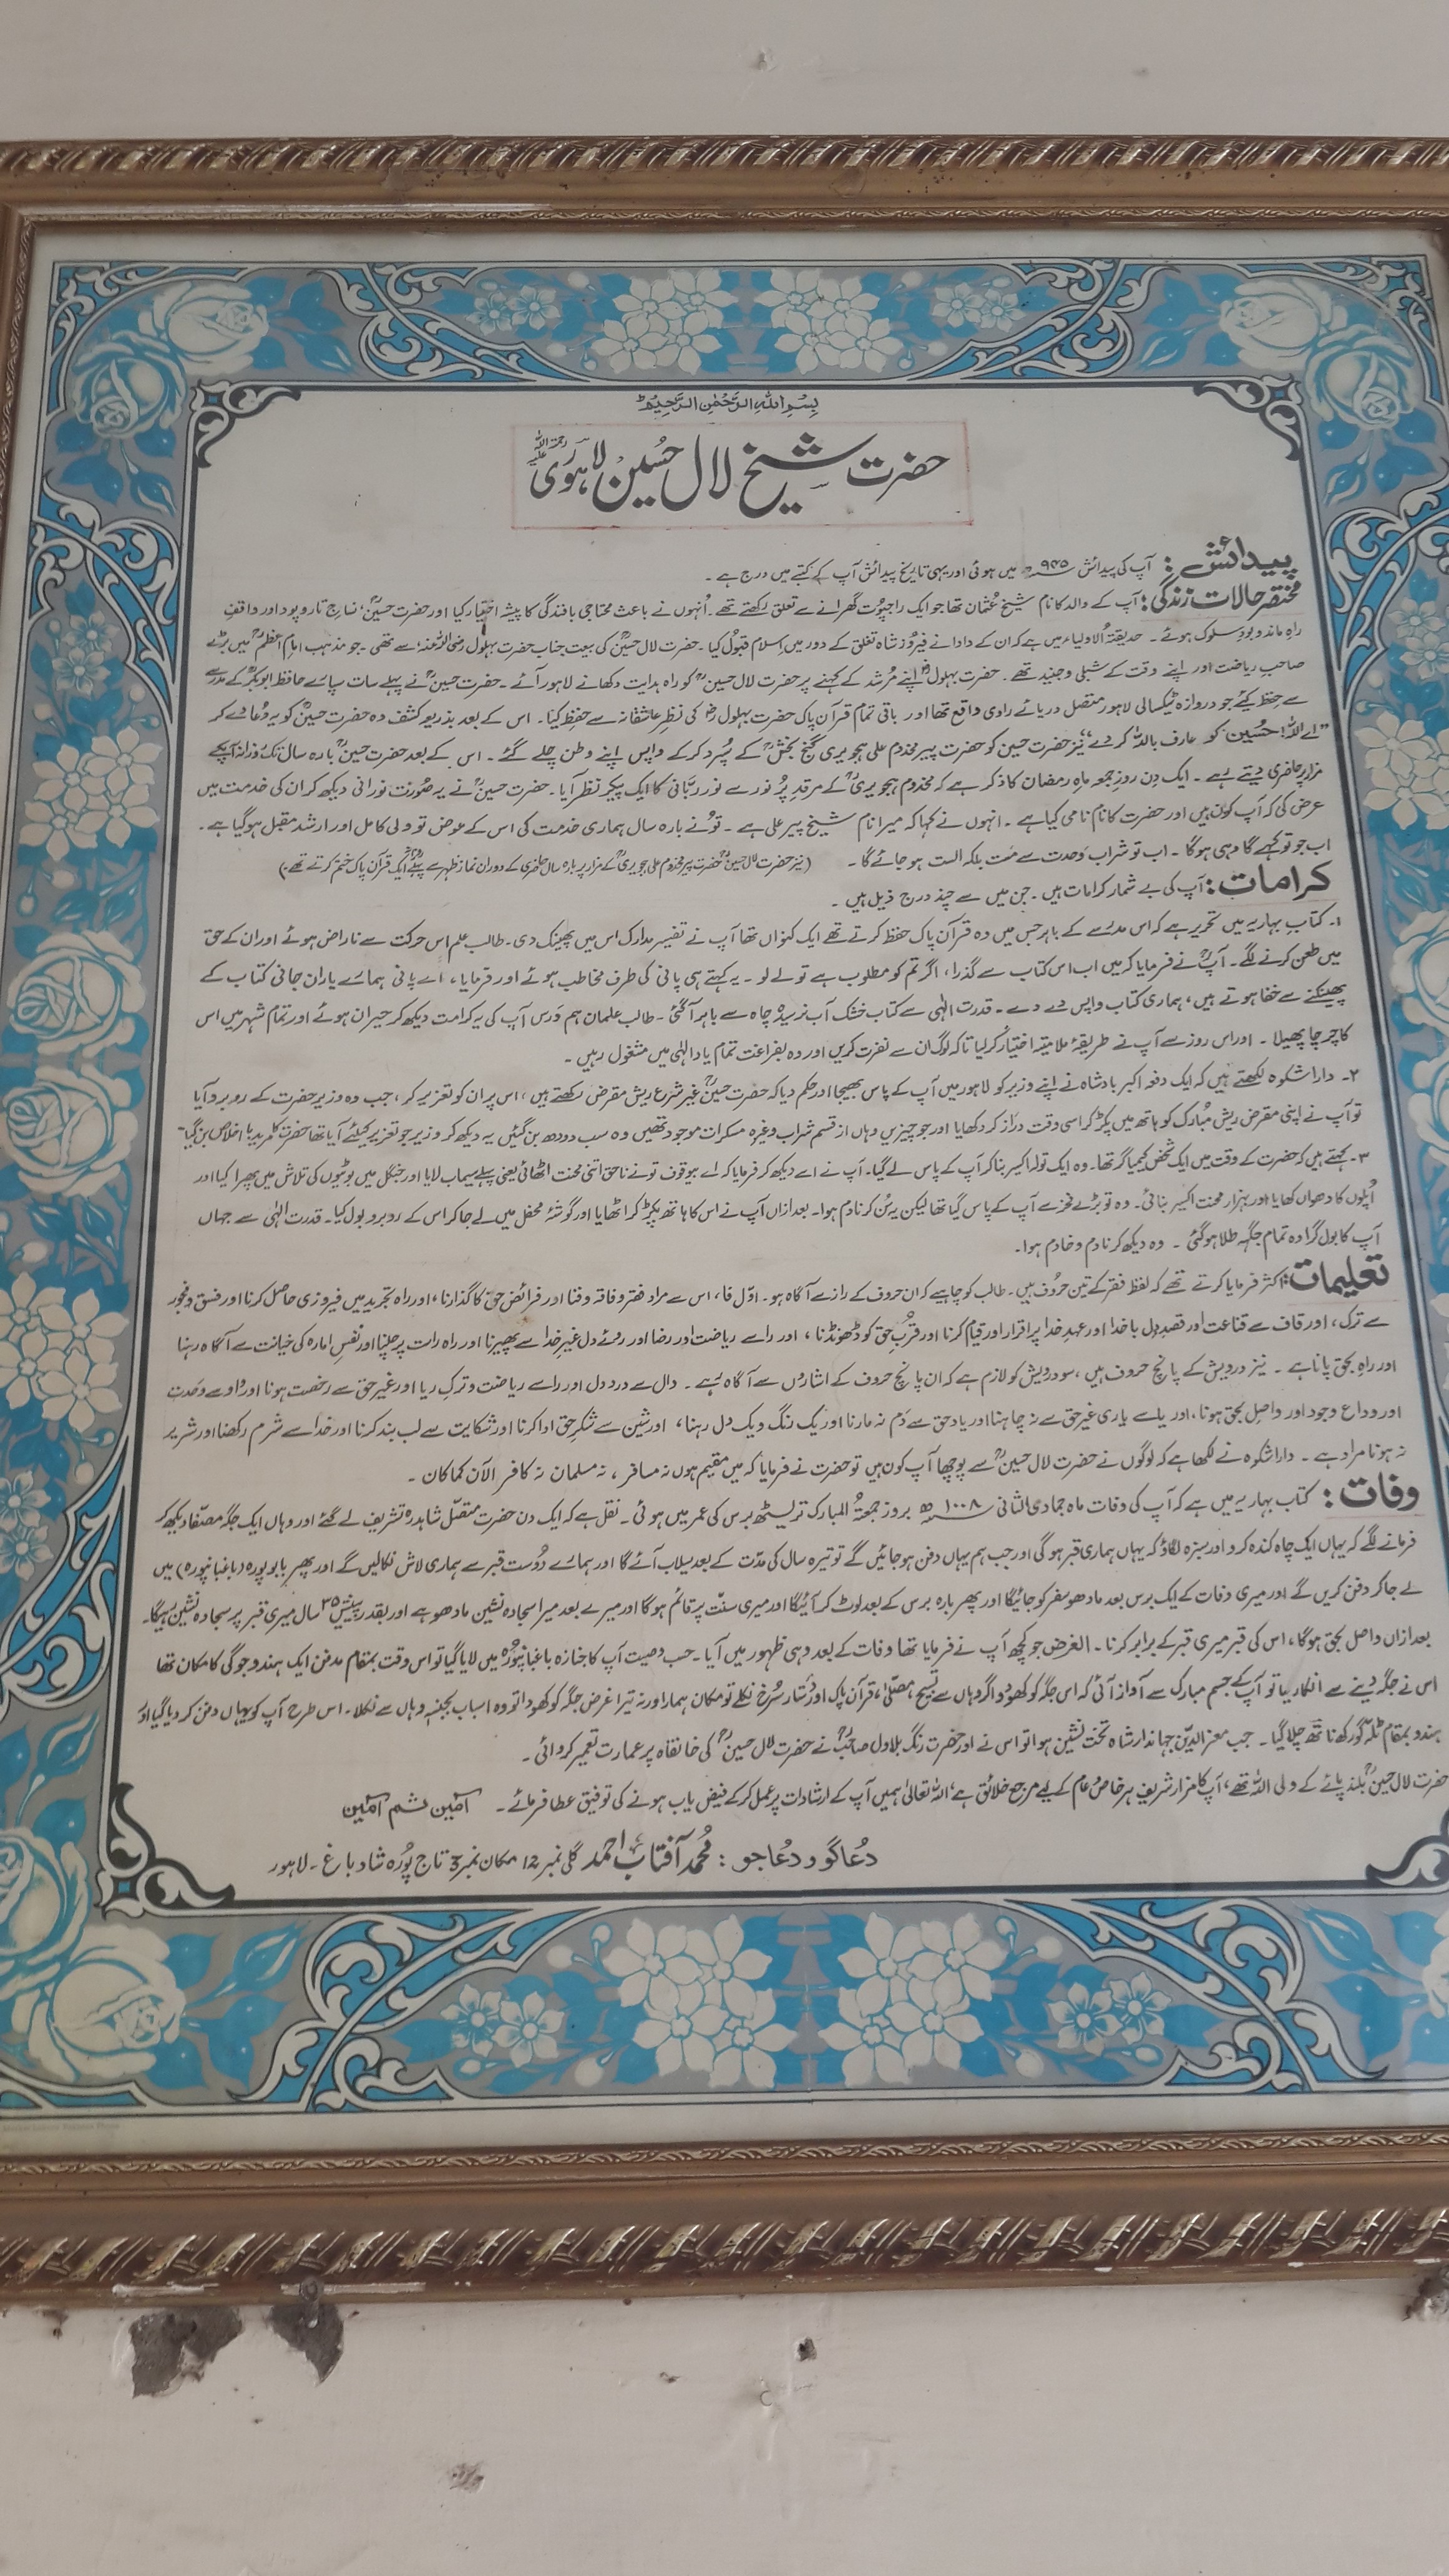 بِسْمِ اللهِ الرَّحْمٰنِ الرَّحِيْمِ
حضرت شیخ لال حُسین لاہوری رحمۃ اللہ علیہ
پیدائش : آپ کی پیدائش ۹۴۵ھ میں ہوئی اور یہی تاریخ پیدائش آپ کے کتبے میں درج ہے ۔
مختصر حالات زندگی : آپ کے والد کا نام شیخ عثمان تھا جو ایک راجپوت گھرانے سے تعلق رکھتے تھے ۔ اُنہوں نے باعث محتاجی بافندگی کا پیشہ اختیار کیا اور حضرت حسینؒ نساجِ تاروپود اور واقفِ
راہِ ماند و بودِ سلوک ہوئے ۔ حدیقۃ الاولیاء میں ہے کہ ان کے دادا نے فیروز شاہ تغلق کے دور میں اسلام قبول کیا ۔ حضرت لال حسینؒ کی بیعت جناب حضرت بہلول رضی اللہ عنہ سے تھی ۔ جو مذہب امام اعظمؒ میں بڑے
صاحبِ ریاضت اور اپنے وقت کے شبلی و جنید تھے ۔ حضرت بہلولؒ اپنے مُرشد کے کہنے پر حضرت لال حسینؒ کو راہ ہدایت دکھانے لاہور آئے ۔ حضرت حسینؒ نے پہلے سات سپارے حافظ ابوبکرؒ کے مدرسے
سے حفظ کیئے جو دروازہ ٹیکسالی لاہور متصل دریائے راوی واقع تھا اور باقی تمام قرآن پاک حضرت بہلولؒ کی نظرِ عاشقانہ سے حفظ کیا ۔ اس کے بعد بذریعہ کشف وہ حضرت حسینؒ کو یہ دُعا دے کر
”اے اللہ! حُسین کو عارف باللہ کر دے“ نیز حضرت حسین کو حضرت پیر مخدوم علی ہجویری گنج بخشؒ کے سُپرد کرکے واپس اپنے وطن چلے گئے ۔ اس کے بعد حضرت حسینؒ بارہ سال تک روزانہ آپکے
مزار پر حاضری دیتے رہے ۔ ایک دِن روزِ جمعہ ماہِ رمضان کا ذکر ہے کہ مخدوم ہجویریؒ کے مرقدِ پُرنور سے نورِ ربّانی کا ایک پیکر نظر آیا ۔ حضرت حسینؒ نے یہ صُورت نورانی دیکھ کر ان کی خدمت میں
عرض کی کہ آپ کون ہیں اور حضرت کا نام نامی کیا ہے ۔ انہوں نے کہا کہ میرا نام شیخ پیر علی ہے ۔ تو نے بارہ سال ہماری خدمت کی اس کے عوض تو ولی کامل اور ارشد مقبل ہو گیا ہے ۔
اب جو تو کہے گا وہی ہوگا ۔ اب تو شراب وَحدت سے مَست بلکہ الست ہو جائے گا ۔ (نیز حضرت لال حسینؒ حضرت پیر مخدوم علی ہجویریؒ کے مزار پر بارہ سال حاضری کے دوران نماز ظہر سے پہلے روزانہ ایک قرآن پاک ختم کرتے تھے)
کرامات : آپ کی بے شمار کرامات ہیں ۔ جن میں سے چند درج ذیل ہیں ۔
۱۔ کتاب بہاریہ میں تحریر ہے کہ اس مدرسے کے باہر جس میں وہ قرآن پاک حفظ کرتے تھے ایک کنواں تھا آپ نے تفسیر مدارک اس میں پھینک دی ۔ طالب علم اس حرکت سے ناراض ہوئے اور ان کے حق
میں طعن کرنے لگے ۔ آپؒ نے فرمایا کہ میں اب اس کتاب سے گذرا، اگر تم کو مطلوب ہے تو لے لو ۔ یہ کہتے ہی پانی کی طرف مخاطب ہوئے اور فرمایا، اے پانی ہمارے یاران جانی کتاب کے
پھینکنے سے خفا ہوتے ہیں، ہماری کتاب واپس دے دے ۔ قدرت الٰہی سے کتاب خشک آب نرسیدہ چاہ سے باہر آ گئی ۔ طالب علمان ہم درس آپ کی یہ کرامت دیکھ کر حیران ہوئے اور تمام شہر میں اس
کا چرچا پھیلا ۔ اور اس روز سے آپ نے طریقۂ ملامتیہ اختیار کر لیا تاکہ لوگ ان سے نفرت کریں اور وہ بفراغت تمام یاد الٰہی میں مشغول رہیں ۔
۲۔ دارا شکوہ لکھتے ہیں کہ ایک دفعہ اکبر بادشاہ نے اپنے وزیر کو لاہور میں آپ کے پاس بھیجا اور حکم دیا کہ حضرت حسینؒ غیر شرع ریش مقرض رکھتے ہیں، اس پر ان کو تعزیر کر، جب وہ وزیر حضرت کے روبرو آیا
تو آپ نے اپنی مقرض ریش مُبارک کو ہاتھ میں پکڑ کر اسی وقت دراز کر دکھایا اور جو چیزیں وہاں از قسم شراب وغیرہ مسکرات موجود تھیں وہ سب دودھ بن گئیں یہ دیکھ کر وزیر جو تعزیر کیلئے آیا تھا حضرت کا مرید با اخلاص بن گیا ۔
۳۔ کہتے ہیں کہ حضرت کے وقت میں ایک شخص کیمیا گر تھا ۔ وہ ایک تولہ اکسیر بنا کر آپ کے پاس لے گیا ۔ آپ نے اسے دیکھ کر فرمایا کہ اے بیوقوف تو نے ناحق اتنی محنت اٹھائی یعنی پہلے سیماب لایا اور جنگل میں بوٹیوں کی تلاش میں پھرا کیا اور
اُپلوں کا دھواں کھایا اور بہزار محنت اکسیر بنائی ۔ وہ تو بڑے فخر سے آپ کے پاس گیا تھا لیکن یہ سُن کر نادم ہوا ۔ بعد ازاں آپ نے اس کا ہاتھ پکڑ کر اٹھایا اور گوشۂ محفل میں لے جا کر اس کے روبرو بول کیا ۔ قدرت الٰہی سے جہاں
آپ کا بول گرا وہ تمام جگہ طلا ہو گئی ۔ وہ دیکھ کر نادم و خادم ہوا ۔
تعلیمات : اکثر فرمایا کرتے تھے کہ لفظ فقر کے تین حروف ہیں ۔ طالب کو چاہیے کہ ان حروف کے راز سے آگاہ ہو ۔ اوّل فا، اس سے مراد فقر و فاقہ و فنا اور فرائض حق کا گذارنا، اور راہِ تجرید میں فیروزی حاصل کرنا اور فسق و فجور
سے ترک، اور قاف سے قناعت اور قصدِ دل با خدا اور عہدِ خدا پر اقرار اور قیام کرنا اور قُربِ حق کو ڈھونڈنا، اور را سے ریاضت اور رضا اور روئے دل غیر خدا سے پھیرنا اور راہِ راست پر چلنا اور نفسِ امارہ کی خیانت سے آگاہ رہنا
اور راہ بحق پانا ہے ۔ نیز درویش کے پانچ حروف ہیں، سو درویش کو لازم ہے کہ ان پانچ حروف کے اشاروں سے آگاہ رہے ۔ دال سے درد دل اور را سے ریاضت و ترکِ ریا اور غیر حق سے رخصت ہونا اور واؤ سے وحدت
اور وداعِ وجود اور واصل بحق ہونا، اور یا سے یاری غیر حق سے نہ چاہنا اور یاد حق سے دَم نہ مارنا اور یک رنگ و یک دل رہنا، اور شین سے شکرِ حق ادا کرنا اور شکایت سے لب بند کرنا اور خدا سے شرم رکھنا اور شریر
نہ ہونا مراد ہے ۔ دارا شکوہ نے لکھا ہے کہ لوگوں نے حضرت لال حسینؒ سے پوچھا آپ کون ہیں تو حضرت نے فرمایا کہ میں مقیم ہوں نہ مسافر، نہ مسلمان نہ کافر الآن کما کان ۔
وفات : کتاب بہاریہ میں ہے کہ آپ کی وفات ماہ جمادی الثانی ۱۰۰۸ھ بروز جمعۃ المبارک تریسٹھ برس کی عمر میں ہوئی ۔ نقل ہے کہ ایک دن حضرت متصل شاہدرہ تشریف لے گئے اور وہاں ایک جگہ مصفّا دیکھ کر
فرمانے لگے کہ یہاں ایک چاہ کندہ کرو اور سبزہ لگاؤ کہ یہاں ہماری قبر ہوگی اور جب ہم یہاں دفن ہو جائیں گے تو تیرہ سال کی مدّت کے بعد سیلاب آئے گا اور ہمارے دوست قبر سے ہماری لاش نکالیں گے اور پھر بابو پورہ (باغبانپورہ) میں
لے جا کر دفن کریں گے اور میری وفات کے ایک برس بعد مادھو سفر کو جائیگا اور پھر بارہ برس کے بعد لوٹ کر آئیگا اور میری سنّت پر قائم ہوگا اور میرے بعد میرا سجادہ نشین مادھو ہے اور بقدر پینتیس ۳۵ سال میری قبر پر سجادہ نشین رہیگا ۔
بعد ازاں واصل بحق ہوگا، اس کی قبر میری قبر کے برابر کرنا ۔ الغرض جو کچھ آپ نے فرمایا تھا وفات کے بعد وہی ظہور میں آیا ۔ حسب وصیت آپ کا جنازہ باغبانپورہ میں لایا گیا تو اس وقت بمقام مدفن ایک ہندو جوگی کا مکان تھا
اس نے جگہ دینے سے انکار کیا تو آپ کے جسم مبارک سے آواز آئی کہ اس جگہ کو کھودو اگر وہاں سے تسبیح، مصلّیٰ، قرآن پاک اور دستار سُرخ نکلے تو مکان ہمارا ورنہ تیرا غرض جگہ کو کھودا تو وہ اسباب بجنسہٖ وہاں سے نکلا ۔ اس طرح آپ کو یہاں دفن کر دیا گیا اور
ہندو بمقام ٹلّہ گورکھ ناتھ چلا گیا ۔ جب معز الدین جہاندار شاہ تخت نشین ہوا تو اس نے اور حضرت رنگ بلاول صاحبؒ نے حضرت لال حسینؒ کی خانقاہ پر عمارت تعمیر کروائی ۔
حضرت لال حسینؒ بلند پائے کے ولی اللہ تھے، آپ کا مزار شریف ہر خاص و عام کے لیے مرجع خلائق ہے، اللہ تعالیٰ ہمیں آپ کے ارشادات پر عمل کرکے فیض یاب ہونے کی توفیق عطا فرمائے ۔ آمین ثم آمین
دُعا گو و دُعا جو : مُحمد آفتاب احمد گلی نمبر 12 مکان نمبر 3 تاج پُورہ شاد باغ ۔ لاہور